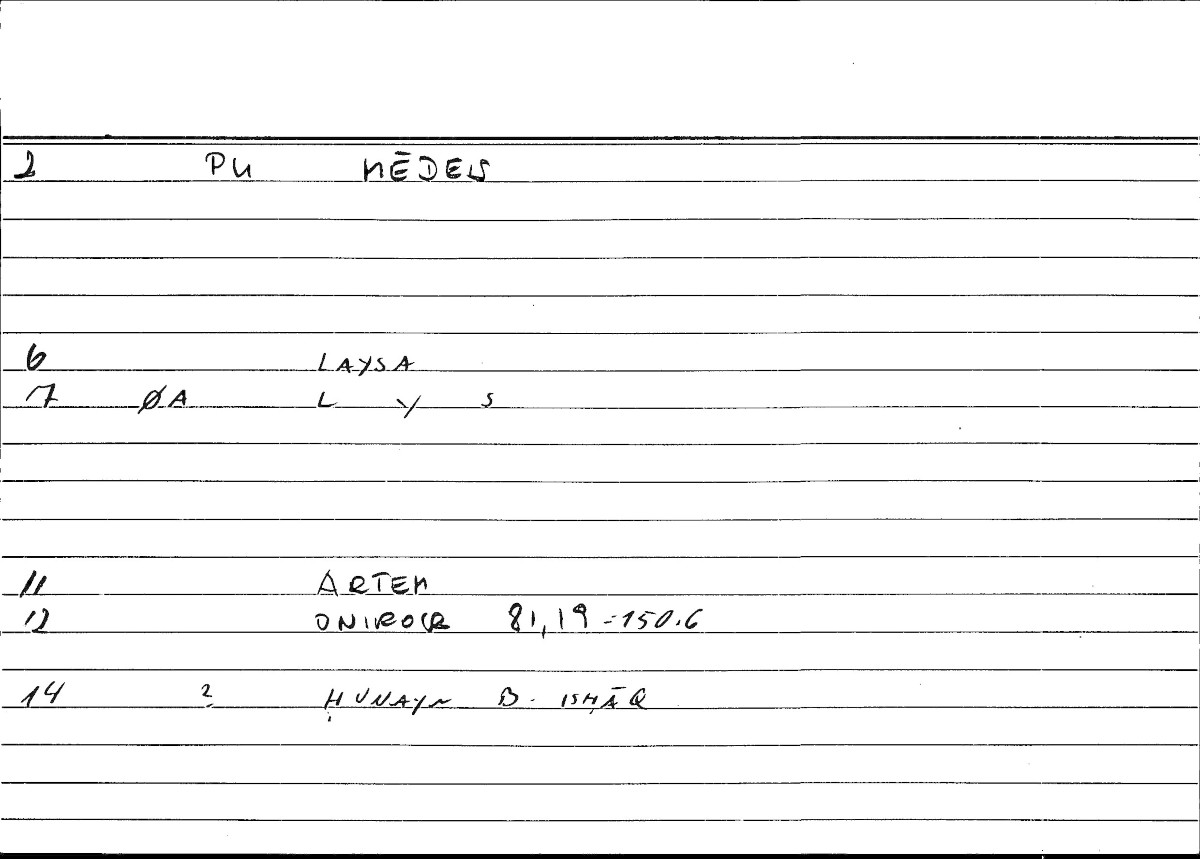 2 PU MĒDEIS
6 LAYSA
7 ØA L Y S
11 ARTEM
12 ONIROCR 81,19 = 150.6
14 ? ḤUNAYN B. ISḤĀQ